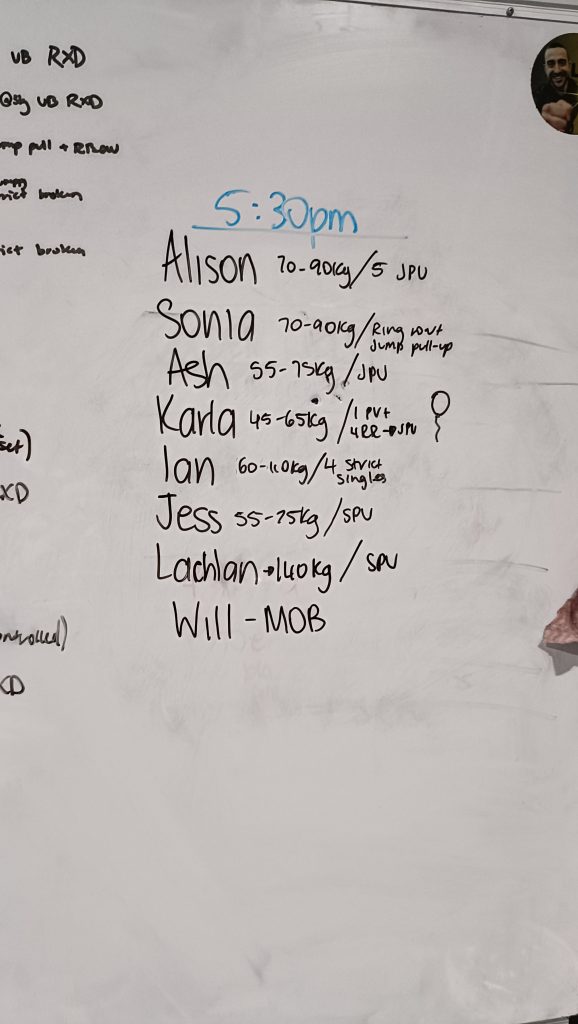 UB RXD
UB RXD
pull +
broken
broken
5:30pm
Alison 70-90kg/5 JPU
Sonia 70-90kg/Ring row+
Jump pull-up
Ash 55-75kg/JPU
Karla 45-65kg/1 PU+
4RR→JPU
Ian 60-110kg/4 strict
singles
Jess 55-75kg/SPU
Lachlan→140kg/SPU
Will-MOB